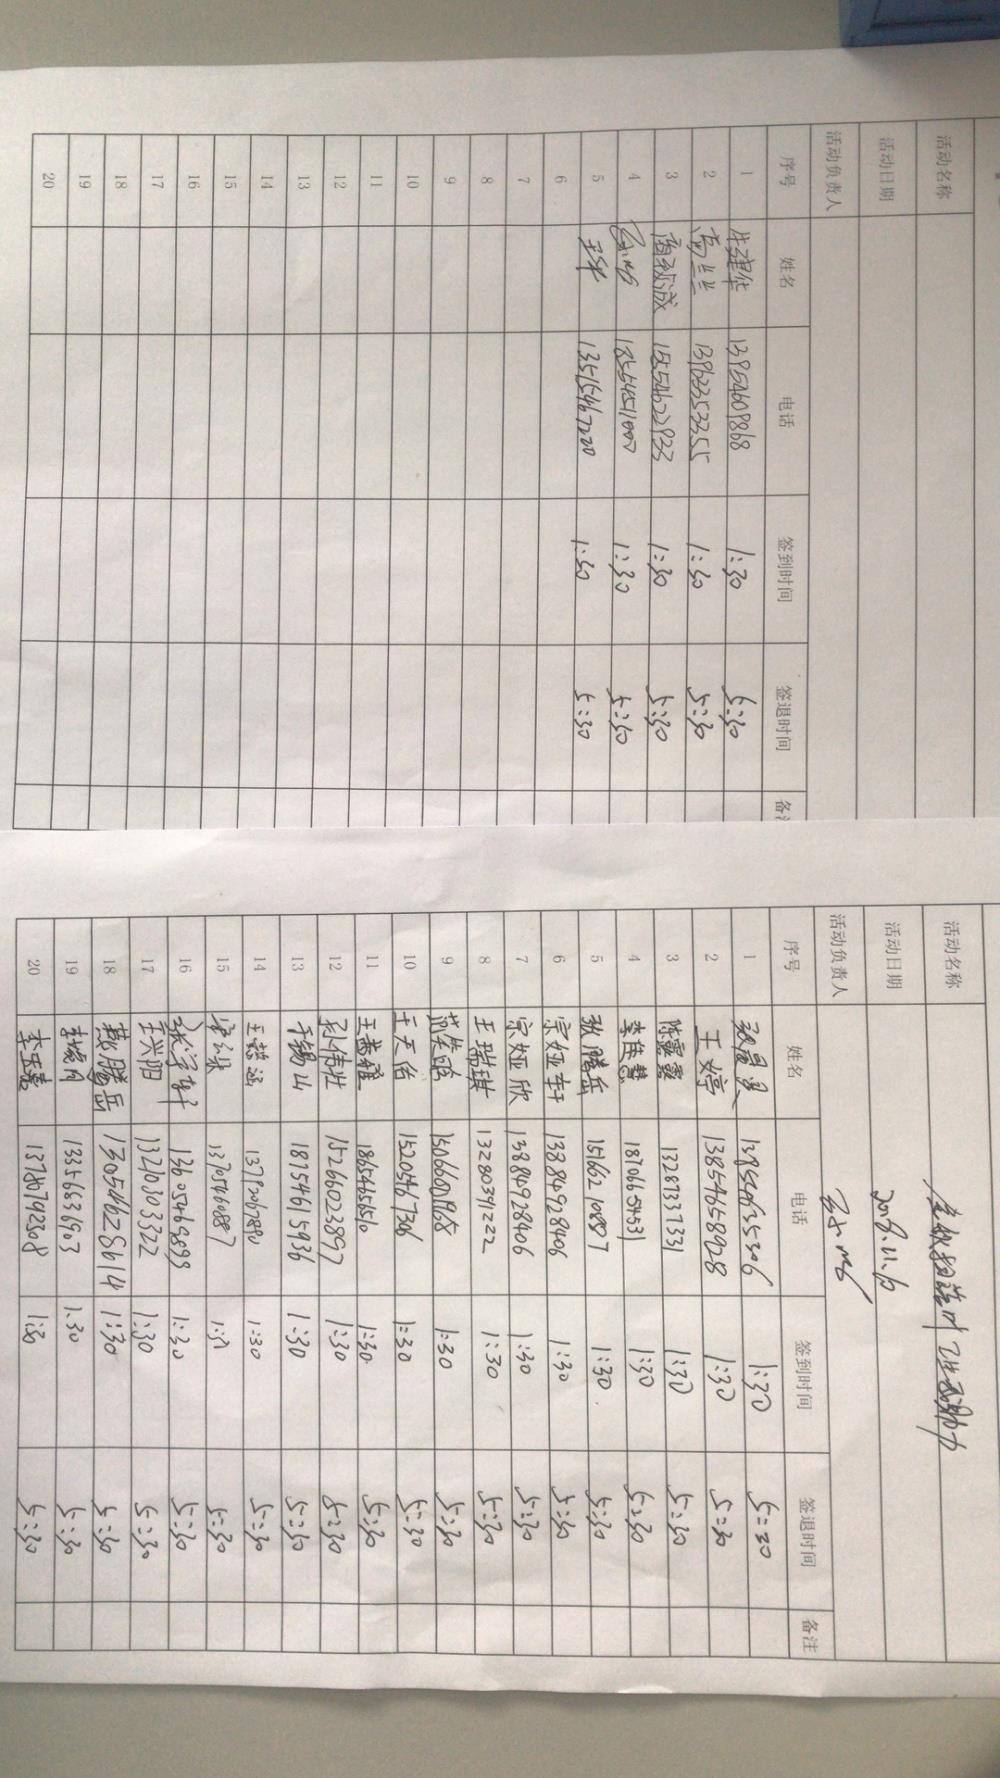 活动名称
活动日期
活动负责人
序号 姓名 电话 签到时间 签退时间 备注
1 牛建华 13954609868 1:30 5:30
2 高兰兰 13963353355 1:30 5:30
3 15554622933 1:30 5:30
4 1:30 5:30
5 13515467220 1:30 5:30
6
7
8
9
10
11
12
13
14
15
16
17
18
19
20
活动名称
活动日期 2018.11.10
活动负责人
序号 姓名 电话 签到时间 签退时间 备注
1 1:30 5:30
2 王婷 13854658928 1:30 5:30
3 陈露露 13287337331 1:30 5:30
4 李佳慧 18706655453 1:30 5:30
5 张腾岳 15166210887 1:30 5:30
6 宗娅轩 13884928406 1:30 5:30
7 宗娅欣 13884928406 1:30 5:30
8 王瑞琪 13280391222 1:30 5:30
9 范笑晗 15066601968 1:30 5:30
10 王天佑 15205467306 1:30 5:30
11 1:30 5:30
12 孙伟壮 15266023897 1:30 5:30
13 于锡山 18754615936 1:30 5:30
14 王懿涵 13792067890 1:30 5:30
15 5:30
16 13605469893 1:30 5:30
17 王兴阳 13210303322 1:30 5:30
18 戴腾岳 13054628614 1:30 5:30
19 13356636903 1:30 5:30
20 13780792308 1:30 5:30